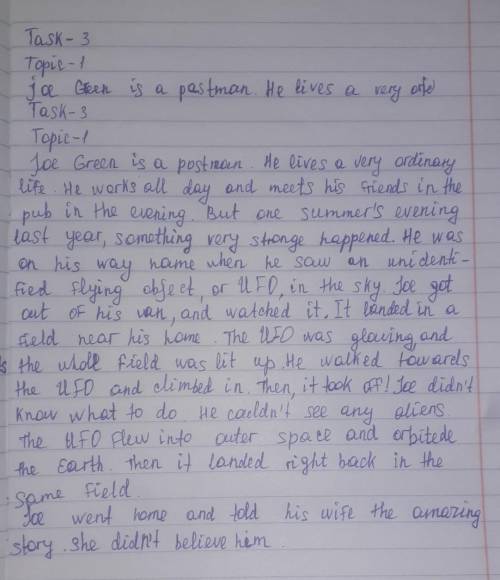 Task-3
Topic-1
Joe Green is a postman. He lives a very
Task-3
Topic-1
Joe Green is a postman. He lives a very ordinary
life. He works all day and meets his friends in the
pub in the evening. But one summer's evening
last year, something very strange happened. He was
on his way name when he saw an unidenti-
fied flying object, or UFO, in the sky. Joe got
out of his van, and watched it. It landed in a
field near his home. The UFO was glowing, and
the whole field was lit up. He walked towards
the UFO and climbed in. Then, it took off! Joe didn't
know what to do. He couldn't see any aliens.
The UFO flew into outer space and orbitede
the Earth. Then it landed right back in the
same field.
Joe went home and told his wife the amazing
story. She didn't believe him.